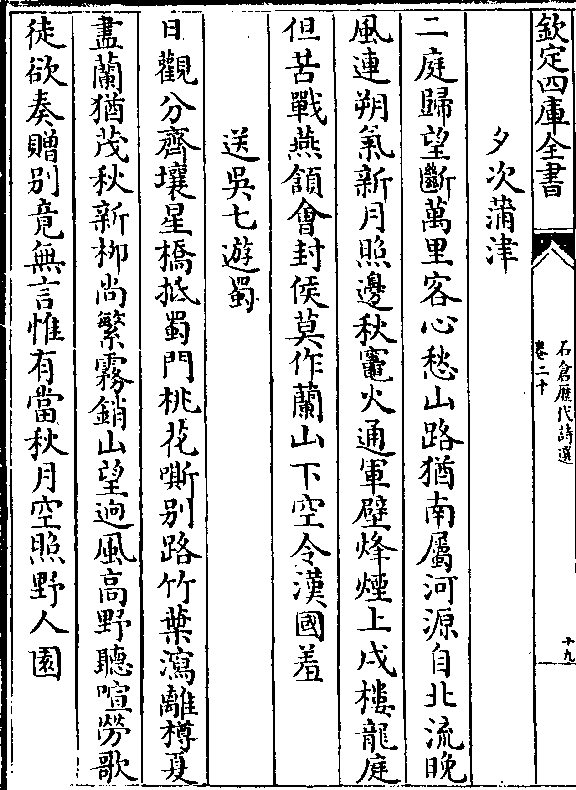 欽定四庫全書
石倉歴代詩選
卷二十
十九
夕次蒲津
二庭歸望斷萬里客心愁山路猶南屬河源自北流晚
風連朔氣新月照邊秋竈火通軍壁烽煙上戍樓龍庭
但苦戰燕頷會封侯莫作蘭山下空令漢國羞
送吳七遊蜀
日觀分齊壤星橋抵蜀門桃花嘶别路竹葉瀉離樽夏
盡蘭猶茂秋新栁尚繁霧銷山望逈風高野聽喧勞歌
徒欲奏贈别竟無言惟有當秋月空照野人園